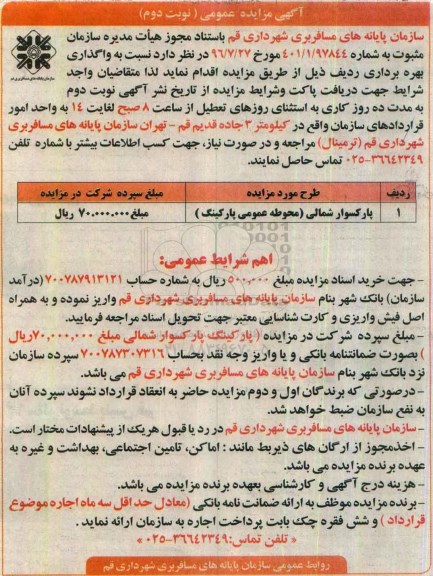 آگهی مزایده عمومی ( نوبت دوم )
سازمان پایانه های مسافربری شهرداری قم باستناد مجوز هیأت مدیره سازمان
مثبوت به شماره ۴۰۱/۱/۹۷۸۴۴ مورخ ۹۶/۷/۲۷ در نظر دارد نسبت به واگذاری
بهره برداری ردیف ذیل از طریق مزایده اقدام نماید لذا متقاضیان واجد
شرایط جهت دریافت پاکت وشرایط مزایده از تاریخ نشر آگهی نوبت دوم
به مدت ده روز کاری به استثنای روزهای تعطیل از ساعت ۸ صبح لغایت ۱۴ به واحد امور
قراردادهای سازمان واقع در کیلومتر ۳ جاده قدیم قم - تهران سازمان پایانه های مسافربری
شهرداری قم (ترمینال) مراجعه و در صورت نیاز، جهت کسب اطلاعات بیشتر با شماره تلفن
۳۶۶۴۲۳۴۹-۰۲۵ تماس حاصل نمایند.
ردیف طرح مورد مزایده مبلغ سپرده شرکت در مزایده
۱ پارکسوار شمالی (محوطه عمومی پارکینگ ) مبلغ ۷۰.۰۰۰.۰۰۰ ریال
اهم شرایط عمومی:
- جهت خرید اسناد مزایده مبلغ ۵۰۰,۰۰۰ ریال به شماره حساب ۷۰۰۷۸۷۹۱۳۱۲۱ (درآمد
سازمان) بانک شهر بنام سازمان پایانه های مسافربری شهرداری قم واریز نموده و به همراه
اصل فیش واریزی و کارت شناسایی معتبر جهت تحویل اسناد مراجعه فرمایید.
- مبلغ سپرده شرکت در مزایده ( پارکینگ پارکسوار شمالی مبلغ ۷۰,۰۰۰,۰۰۰ریال
) بصورت ضمانتنامه بانکی و یا واریز وجه نقد بحساب ۷۰۰۷۸۷۳۰۷۳۱۶ سپرده سازمان
نزد بانک شهر بنام سازمان پایانه های مسافربری شهرداری قم می باشد.
- درصورتی که برندگان اول و دوم مزایده حاضر به انعقاد قرارداد نشوند سپرده آنان
به نفع سازمان ضبط خواهد شد.
- سازمان پایانه های مسافربری شهرداری قم در رد یا قبول هریک از پیشنهادات مختار است.
- اخذمجوز از ارگان های ذیربط مانند : اماکن، تامین اجتماعی، بهداشت و غیره به
عهده برنده مزایده می باشد.
- هزینه درج آگهی و کارشناسی بعهده برنده مزایده می باشد.
- برنده مزایده موظف به ارائه ضمانت نامه بانکی (معادل حداقل سه ماه اجاره موضوع
قرارداد ) و شش فقره چک بابت پرداخت اجاره به سازمان ارائه نماید .
« تلفن تماس: ۳۶۶۴۲۳۴۹-۰۲۵ »
روابط عمومی سازمان پایانه های مسافربری شهرداری قم